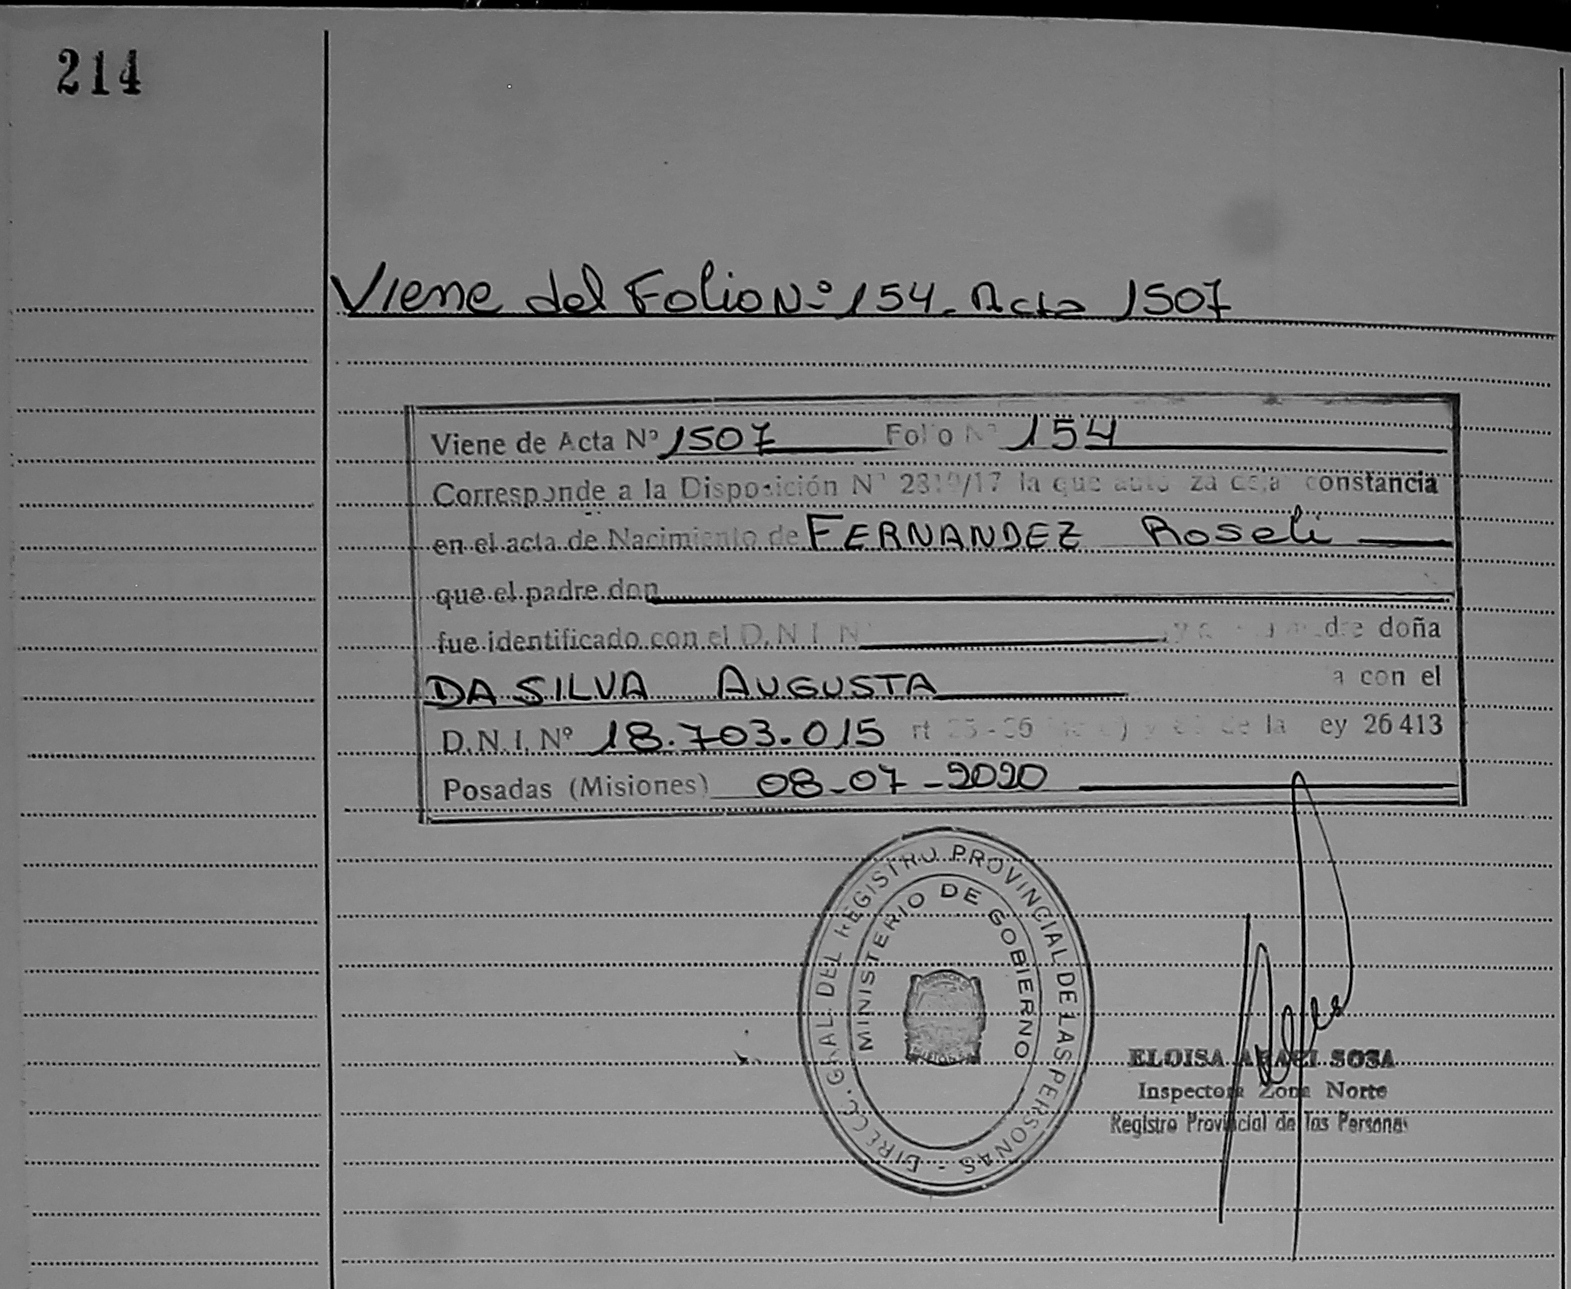 214
Viene del Folio Nº 154. Acta 1507
Viene de Acta Nº 1507 Folio Nº 154
Corresponde a la Disposición Nº /17 la que constancia
en el acta de Nacimiento de FERNANDEZ Roseli
que el padre don
fue identificado con el D.N.I. Nº doña
DA SILVA AUGUSTA con el
D.N.I. Nº 18.703.015 de la ey 26413
Posadas (Misiones) 08-07-2020
DIRECC. GRAL. DEL REGISTRO PROVINCIAL DE LAS PERSONAS -
MINISTERIO DE GOBIERNO
ELOISA SOSA
Inspectora Zona Norte
Registro Provincial de las Personas